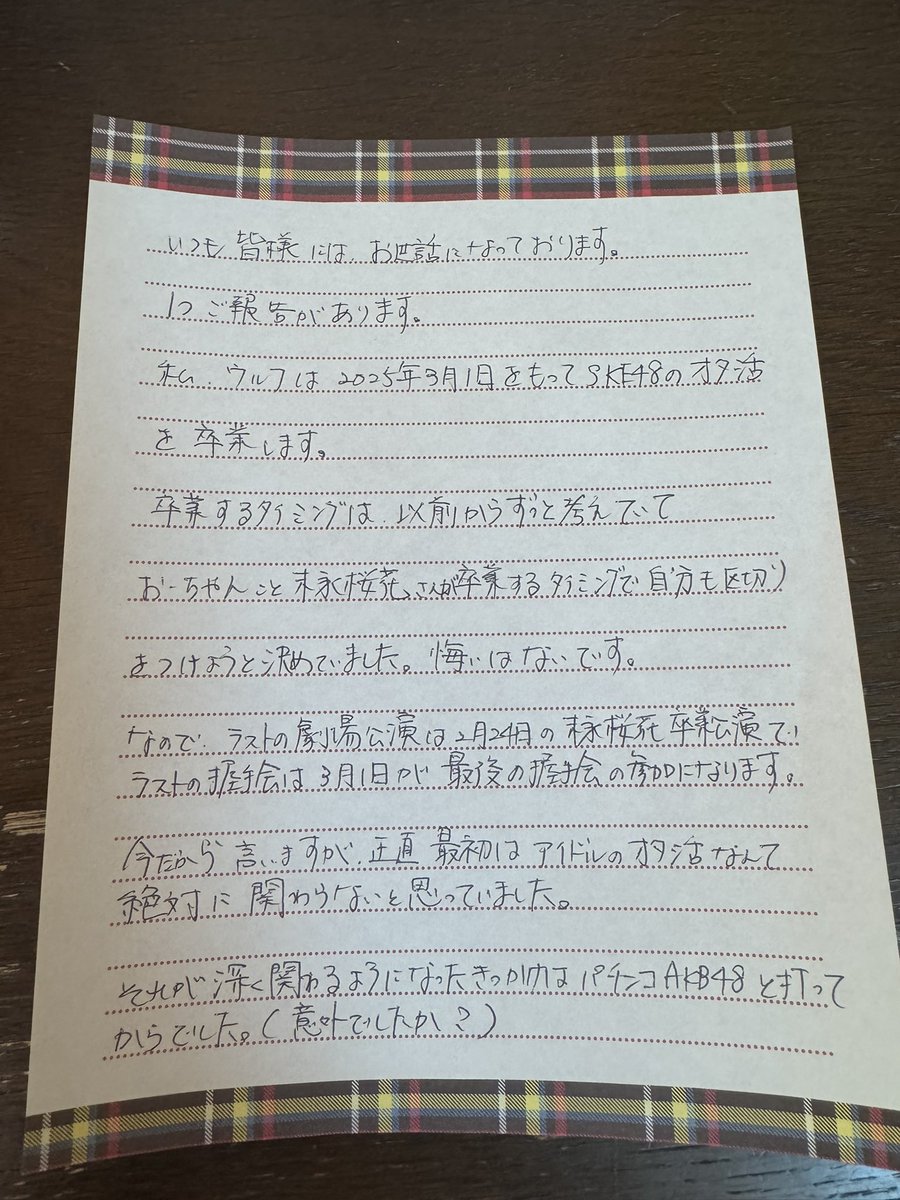 いつも皆様には、お世話になっております。
1つご報告があります。
私、ウルフは2025年3月1日をもってSKE48のオタ活
を卒業します。
卒業するタイミングは、以前からずっと考えていて
おーちゃんこと末永桜花さんが卒業するタイミングで自分も区切り
をつけようと決めていました。悔いはないです。
なので、ラストの劇場公演は2月24日の末永桜花卒業公演で、
ラストの握手会は3月1日が最後の握手会の参加になります。
今だから言いますが、正直最初はアイドルのオタ活なんて
絶対に関わらないと思っていました。
それが深く関わるようになったきっかけはパチンコAKB48と打って
からでした。(意外でしたか?)